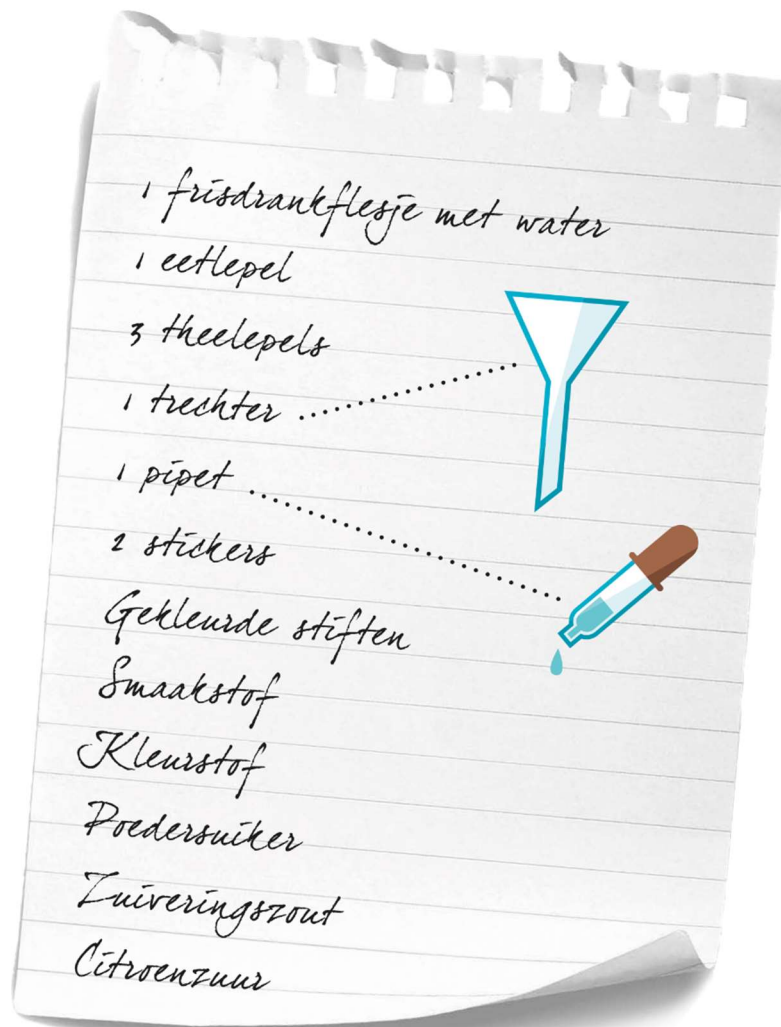 1 frisdrankflesje met water
1 eetlepel
3 theelepels
1 trechter
1 pipet
2 stickers
Gekleurde stiften
Smaakstof
Kleurstof
Poedersuiker
Zuiveringszout
Citroenzuur